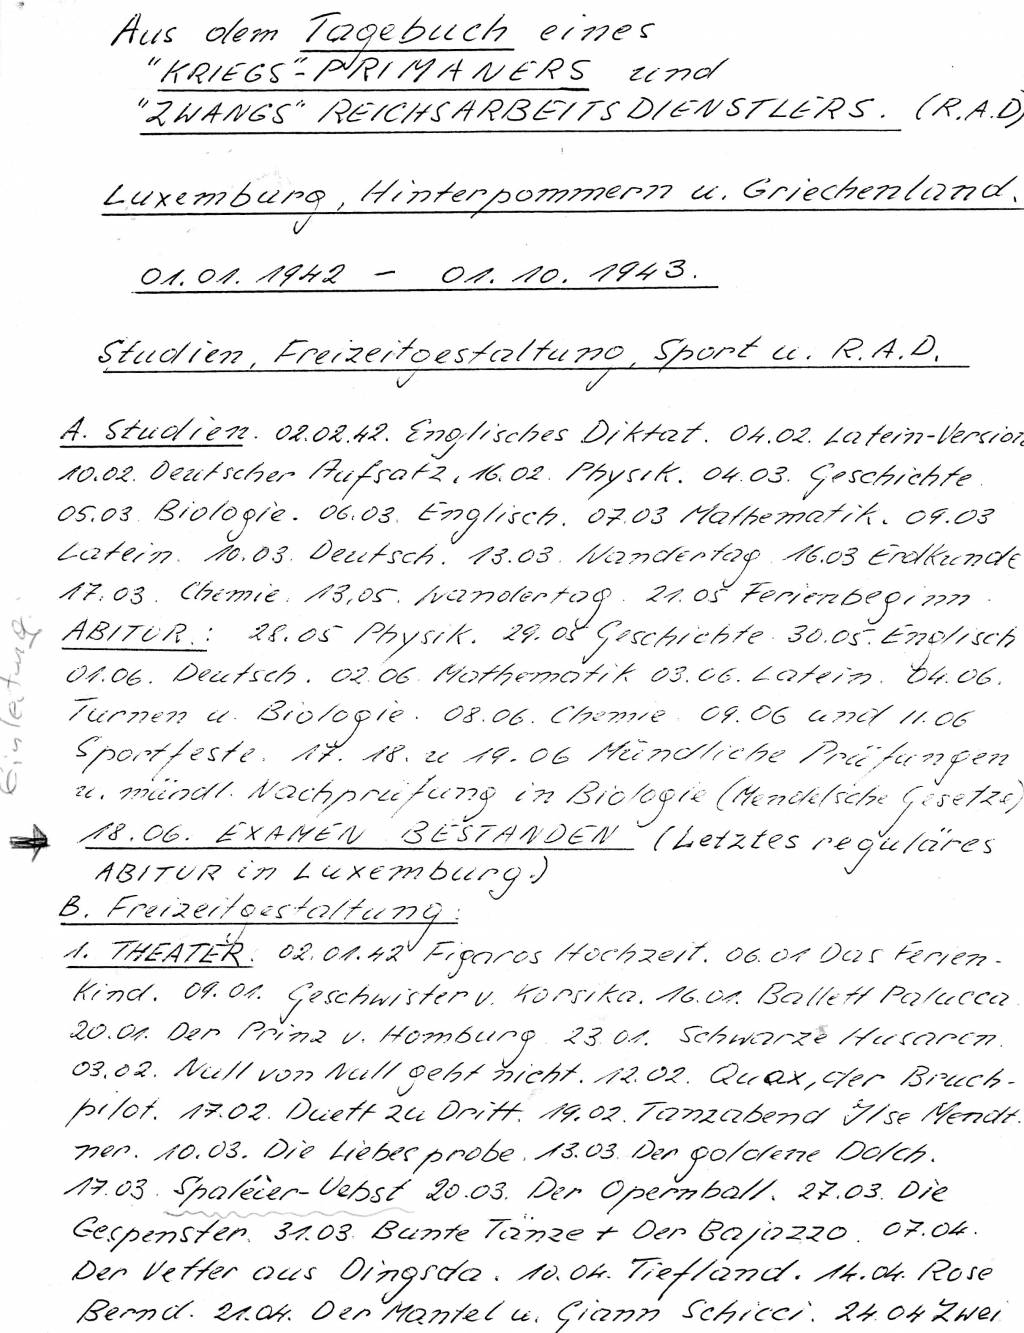 Aus dem Tagebuch eines
"KRIEGS"-PRIMANERS und
"ZWANGS" REICHSARBEITSDIENSTLERS. (R.A.D)
Luxemburg, Hinterpommern u. Griechenland.
01.01.1942 - 01.10.1943.
Studien, Freizeitgestaltung, Sport u. R.A.D.
A. Studien. 02.02.42. Englisches Diktat. 04.02. Latein-Version
10.02. Deutscher Aufsatz. 16.02. Physik. 04.03. Geschichte
05.03 Biologie. 06.03. Englisch. 07.03 Mathematik. 09.03
Latein. 10.03. Deutsch. 13.03. Wandertag. 16.03 Erdkunde
17.03. Chemie. 13.05. Wandertag. 21.05 Ferienbeginn.
ABITUR.: 28.05 Physik. 29.05 Geschichte. 30.05. Englisch
01.06. Deutsch. 02.06. Mathematik 03.06. Latein. 04.06.
Turnen u. Biologie. 08.06. Chemie. 09.06 und 11.06
Sportfeste. 17. 18. u 19.06 Mündliche Prüfungen
u. mündl. Nachprüfung in Biologie (Mendelsche Gesetze)
18.06. EXAMEN BESTANDEN (Letztes reguläres
ABITUR in Luxemburg.)
Einleitung.
B. Freizeitgestaltung:
1. THEATER. 02.01.42 Figaros Hochzeit. 06.01 Das Ferien-
kind. 09.01. Geschwister v. Korsika. 16.01. Ballett Palucca.
20.01. Der Prinz v. Homburg. 23.01. Schwarze Husaren.
03.02. Null von Null geht nicht. 12.02. Quax, der Bruch-
pilot. 17.02. Duett zu Dritt. 19.02. Tanzabend Ilse Meudt-
ner. 10.03. Die Liebesprobe. 13.03. Der goldene Dolch.
17.03. Spaléier-Uebst 20.03. Der Opernball. 27.03. Die
Gespenster. 31.03. Bunte Tänze + Der Bajazzo. 07.04.
Der Vetter aus Dingsda. 10.04. Tiefland. 14.04. Rose
Bernd. 21.04. Der Mantel u. Giann Schicci. 24.04 Zwei